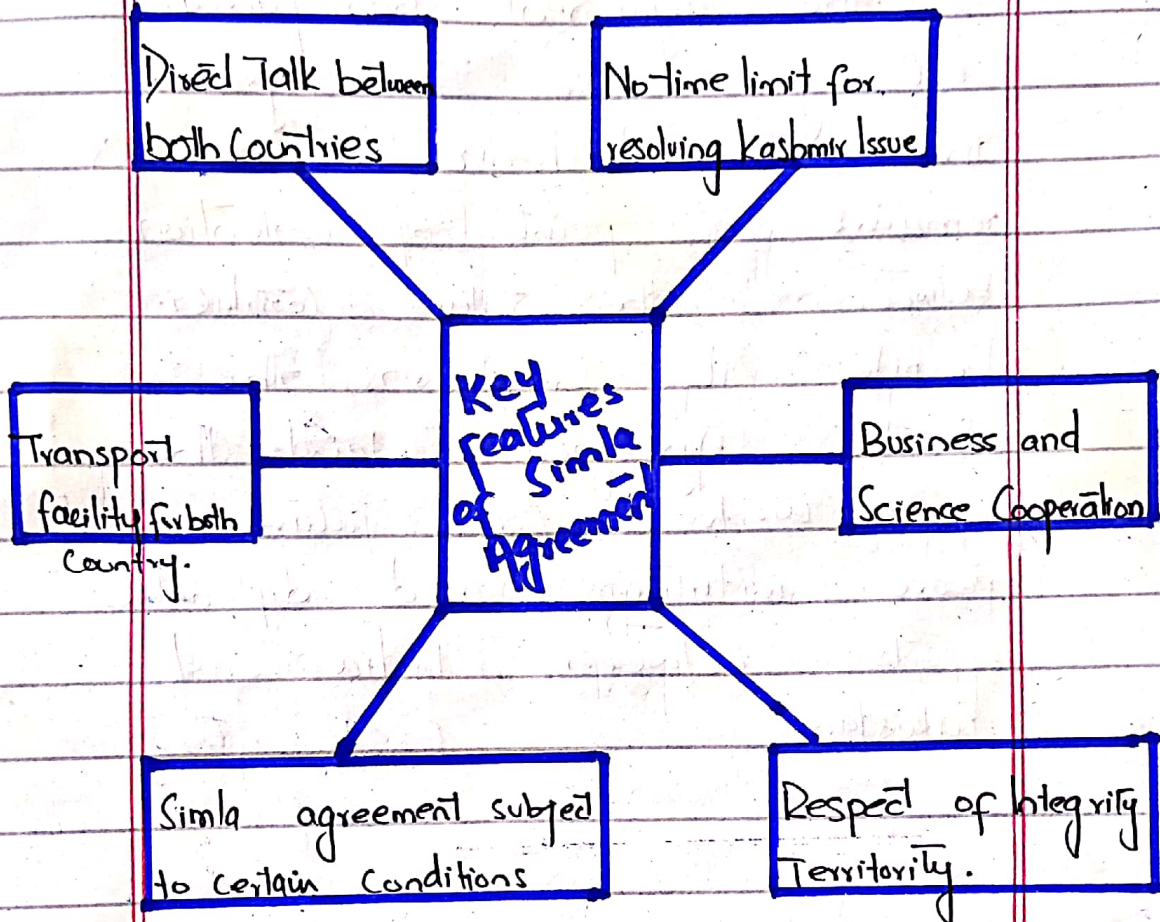 Direct Talk between
both Countries
No time limit for
resolving Kashmir Issue
Key
features
of Simla
Agreement
Transport
facility for both
Country.
Business and
Science Cooperation
Simla agreement subject
to certain Conditions
Respect of Integrity
Territority.